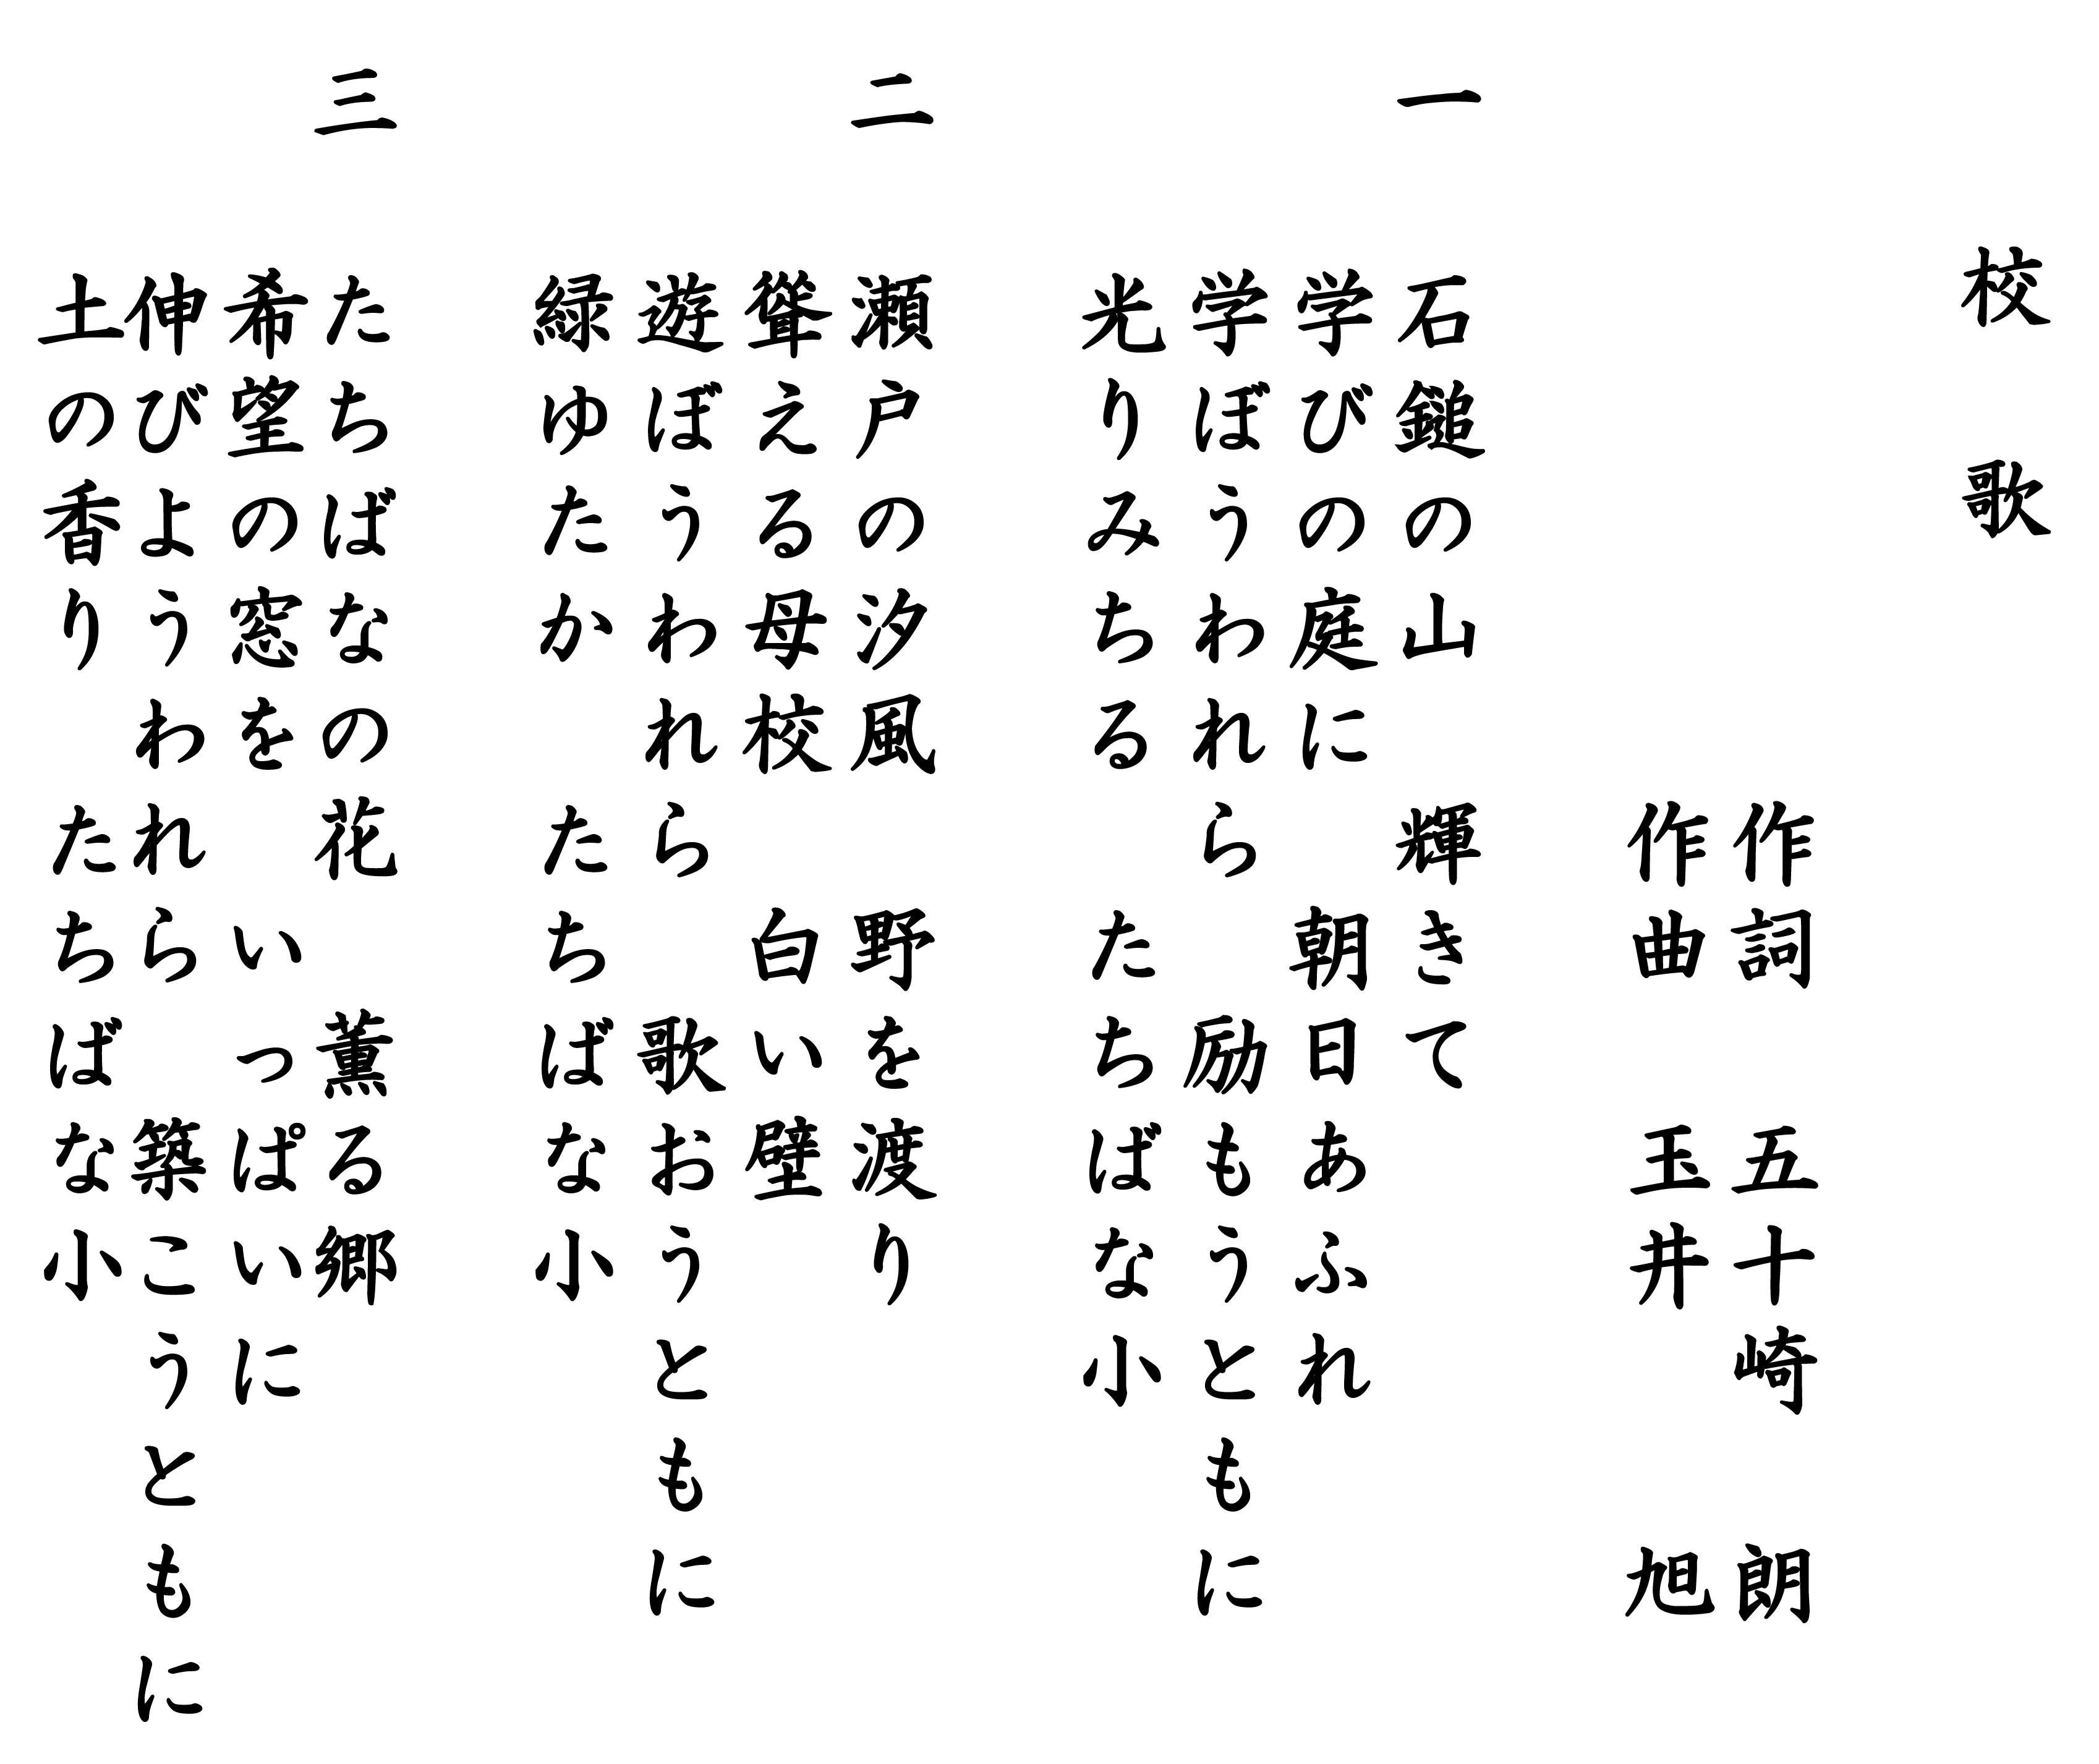 校 歌
作詞 五十崎 朗
作曲 玉井 旭
一 石鎚の山 輝きて
学びの庭に 朝日あふれ
学ぼうわれら 励もうともに
光りみちる たちばな小
二 瀬戸の汐風 野を渡り
聳える母校 白い壁
遊ぼうわれら 歌おうともに
緑ゆたか たちばな小
三 たちばなの花 薫る郷
希望の窓を いっぱいに
伸びよう われら 築こうともに
土の香り たちばな小